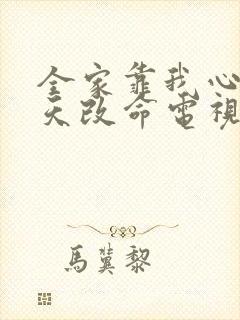 全家靠我心
天改命電視
馬冀黎